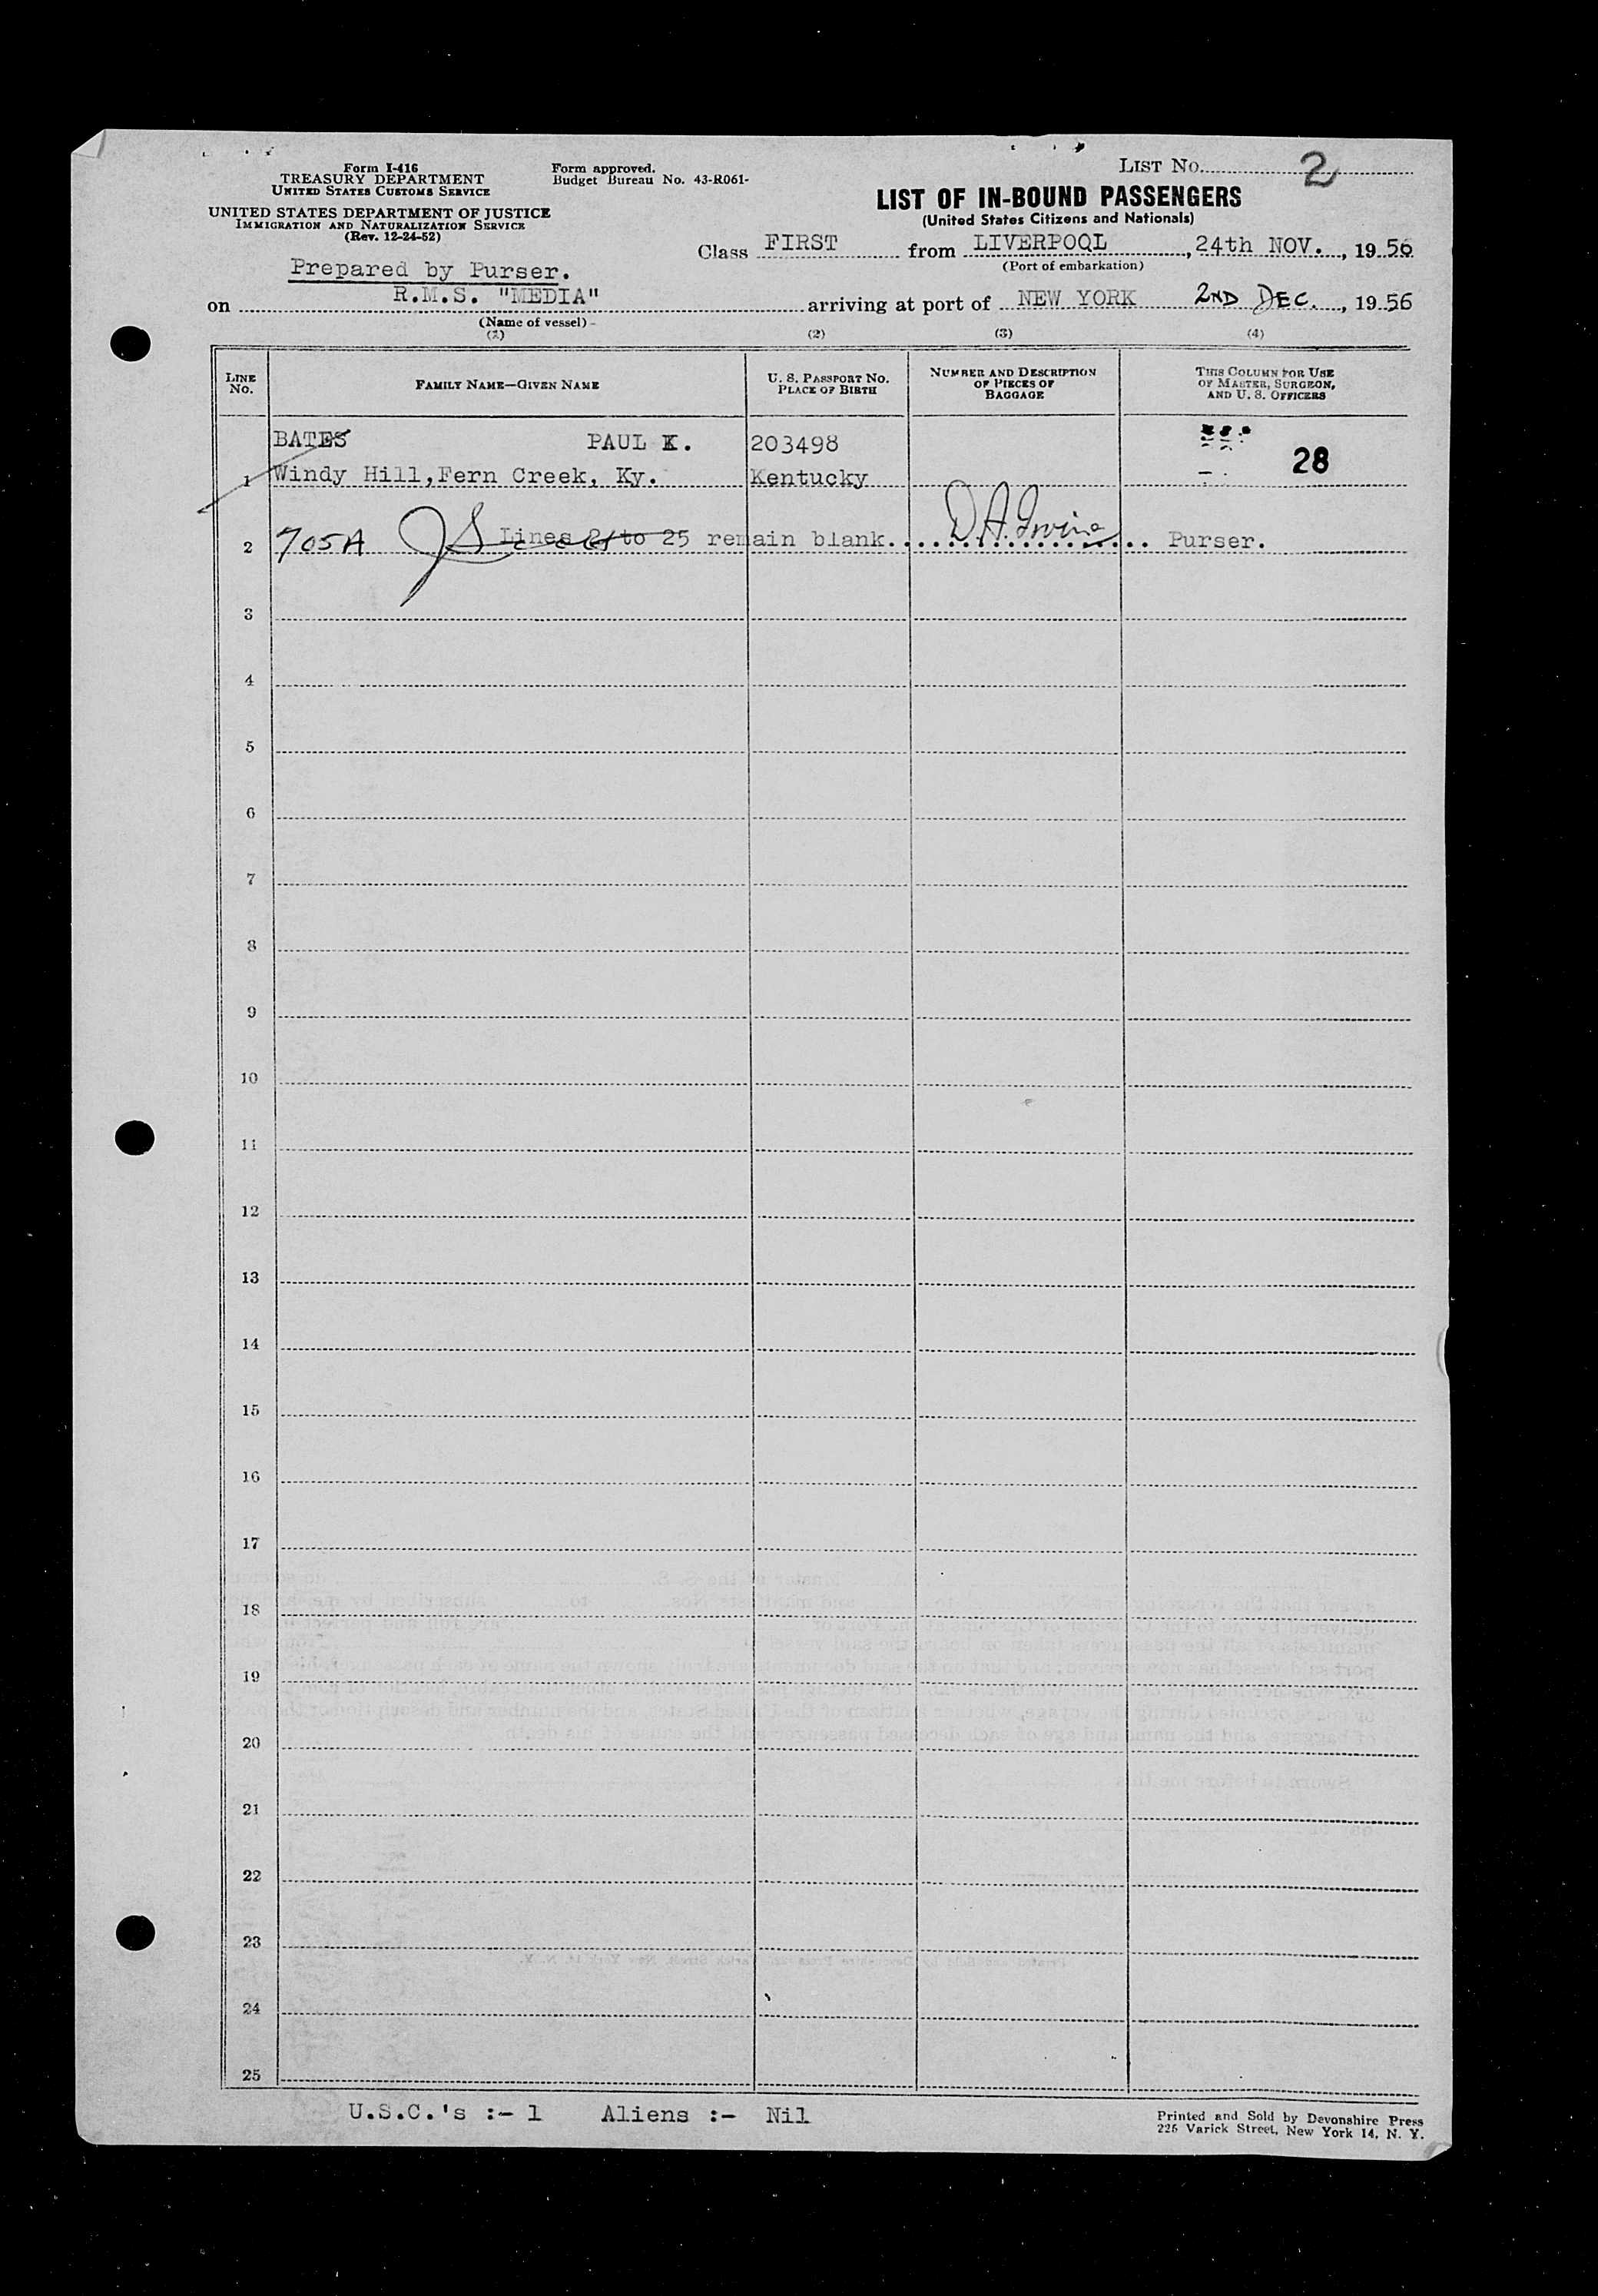 Form I-416
TREASURY DEPARTMENT
UNITED STATES CUSTOMS SERVICE
UNITED STATES DEPARTMENT OF JUSTICE
IMMIGRATION AND NATURALIZATION SERVICE
(Rev. 12-24-52)
Form approved.
Budget Bureau No. 43-R061-
LIST NO. 2
LIST OF IN-BOUND PASSENGERS
(United States Citizens and Nationals)
Class FIRST from LIVERPOOL, 24th NOV., 1956
(Port of embarkation)
Prepared by Purser.
on R.M.S. "MEDIA" arriving at port of NEW YORK 2ND DEC., 1956
(Name of vessel)
(1) (2) (3) (4)
LINE NO.
FAMILY NAME—GIVEN NAME
U. S. PASSPORT NO.
PLACE OF BIRTH
NUMBER AND DESCRIPTION
OF PIECES OF
BAGGAGE
THIS COLUMN FOR USE
OF MASTER, SURGEON,
AND U. S. OFFICERS
BATES PAUL K. 203498 28
1 Windy Hill, Fern Creek, Ky. Kentucky
2 705A Lines 2 to 25 remain blank. D.A. Irvine Purser.
3
4
5
6
7
8
9
10
11
12
13
14
15
16
17
18
19
20
21
22
23
24
25
U.S.C.'s :- 1 Aliens :- Nil
Printed and Sold by Devonshire Press
225 Varick Street, New York 14, N. Y.